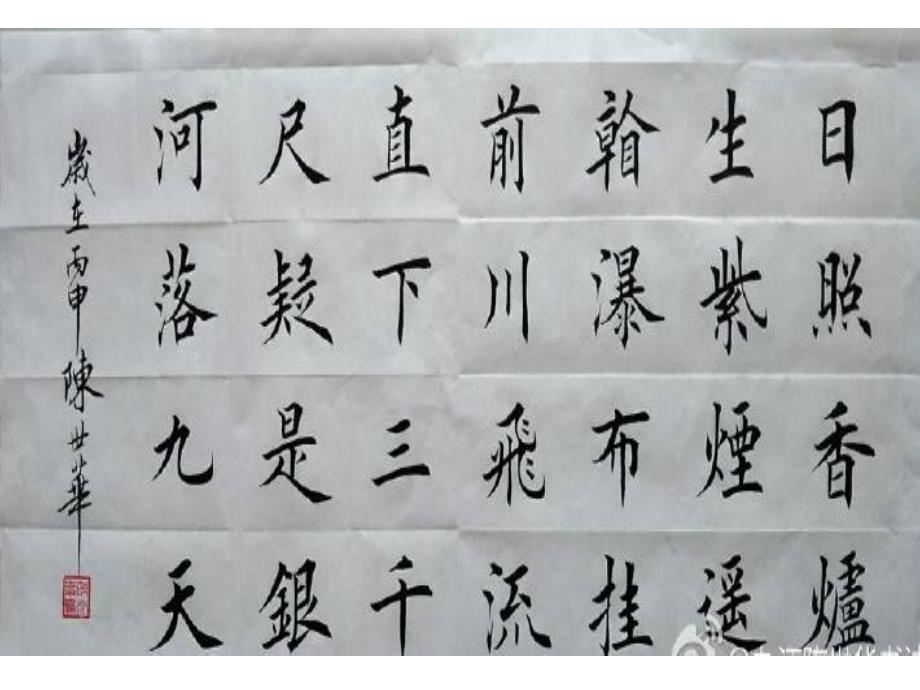 日照香爐
生紫煙遥
䩠瀑布挂
前川飛流
直下三千
尺疑是銀
河落九天
歲在丙申陳世華